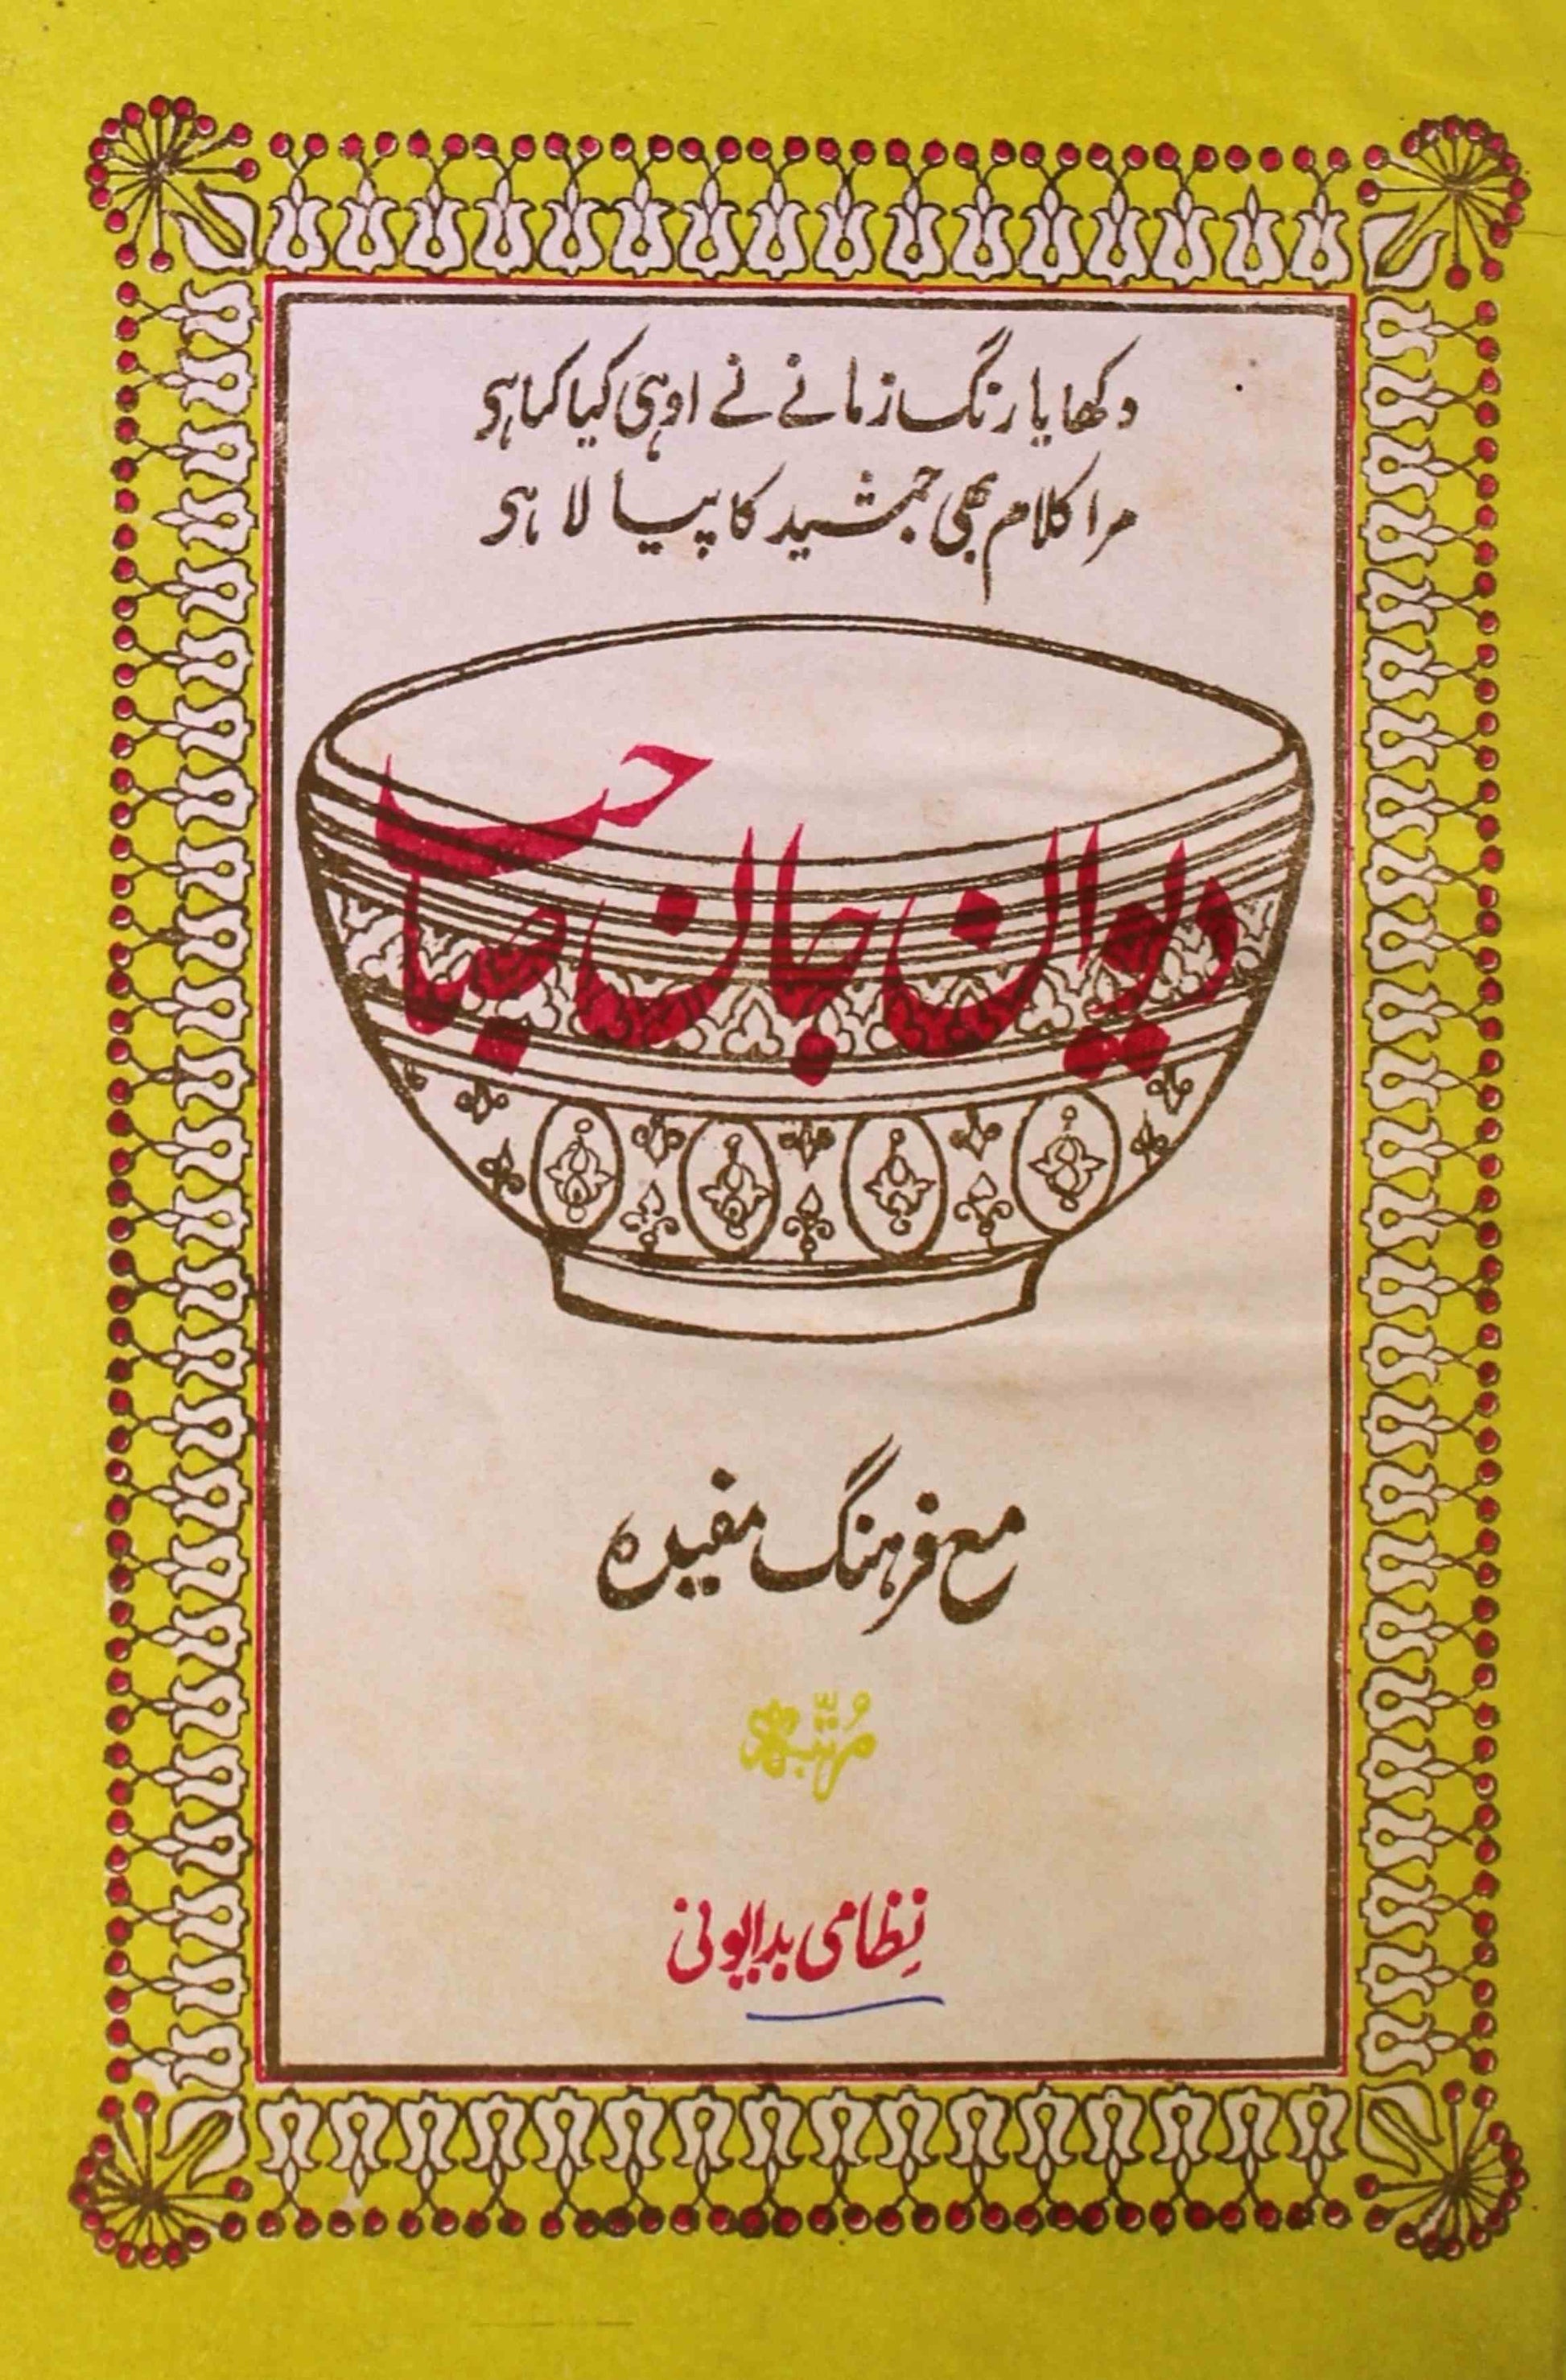 دکھایا رنگ زمانے نے اوہی کیا کیا ہی
مرا کلام بھی جمشید کا پیالا ہی
دیوان جان صاحب
مع فرہنگ مفیدہ
مُرتّبہ
نِظامی بدایونی